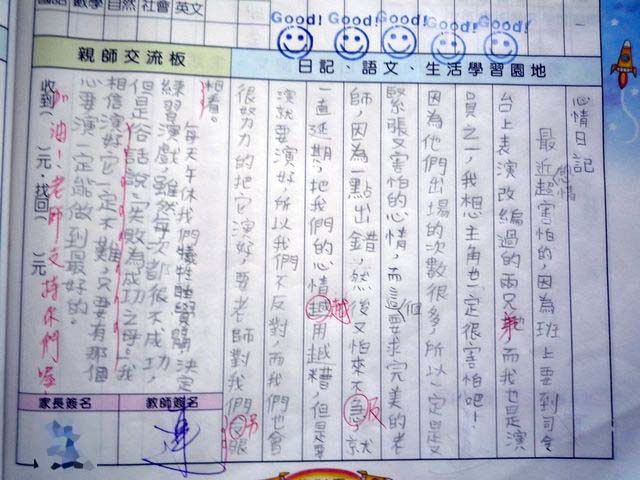 國語 數學 自然 社會 英文
Good! Good! Good! Good! Good!
日記、語文、生活學習園地
親師交流板
心情日記
最近超害怕的心情,因為班上要到司令
台上表演改編過的兩兄弟,而我也是演
員之一,我想主角也一定很害怕吧!
因為他們出場的次數很多,所以一定是又
緊張又害怕的心情,而這個要求完美的老
師,因為一點出錯,然後又怕來不急及,就
一直延期,把我們的心情越越用越糟,但是要
演就要演好,所以我們不反對,而我們也會
很努力的把它演好,要老師對我們另眼
相看。
每天午休我們犧牲睡覺時間,決定
練習演戲,雖然每次都很不成功,
但是俗話說:失敗為成功之母。我
相信演好它一定不難,只要有那個
心要演一定能做到最好的。
加油!老師支持你們喔
收到( )元,找回( )元
教師簽名
家長簽名
連